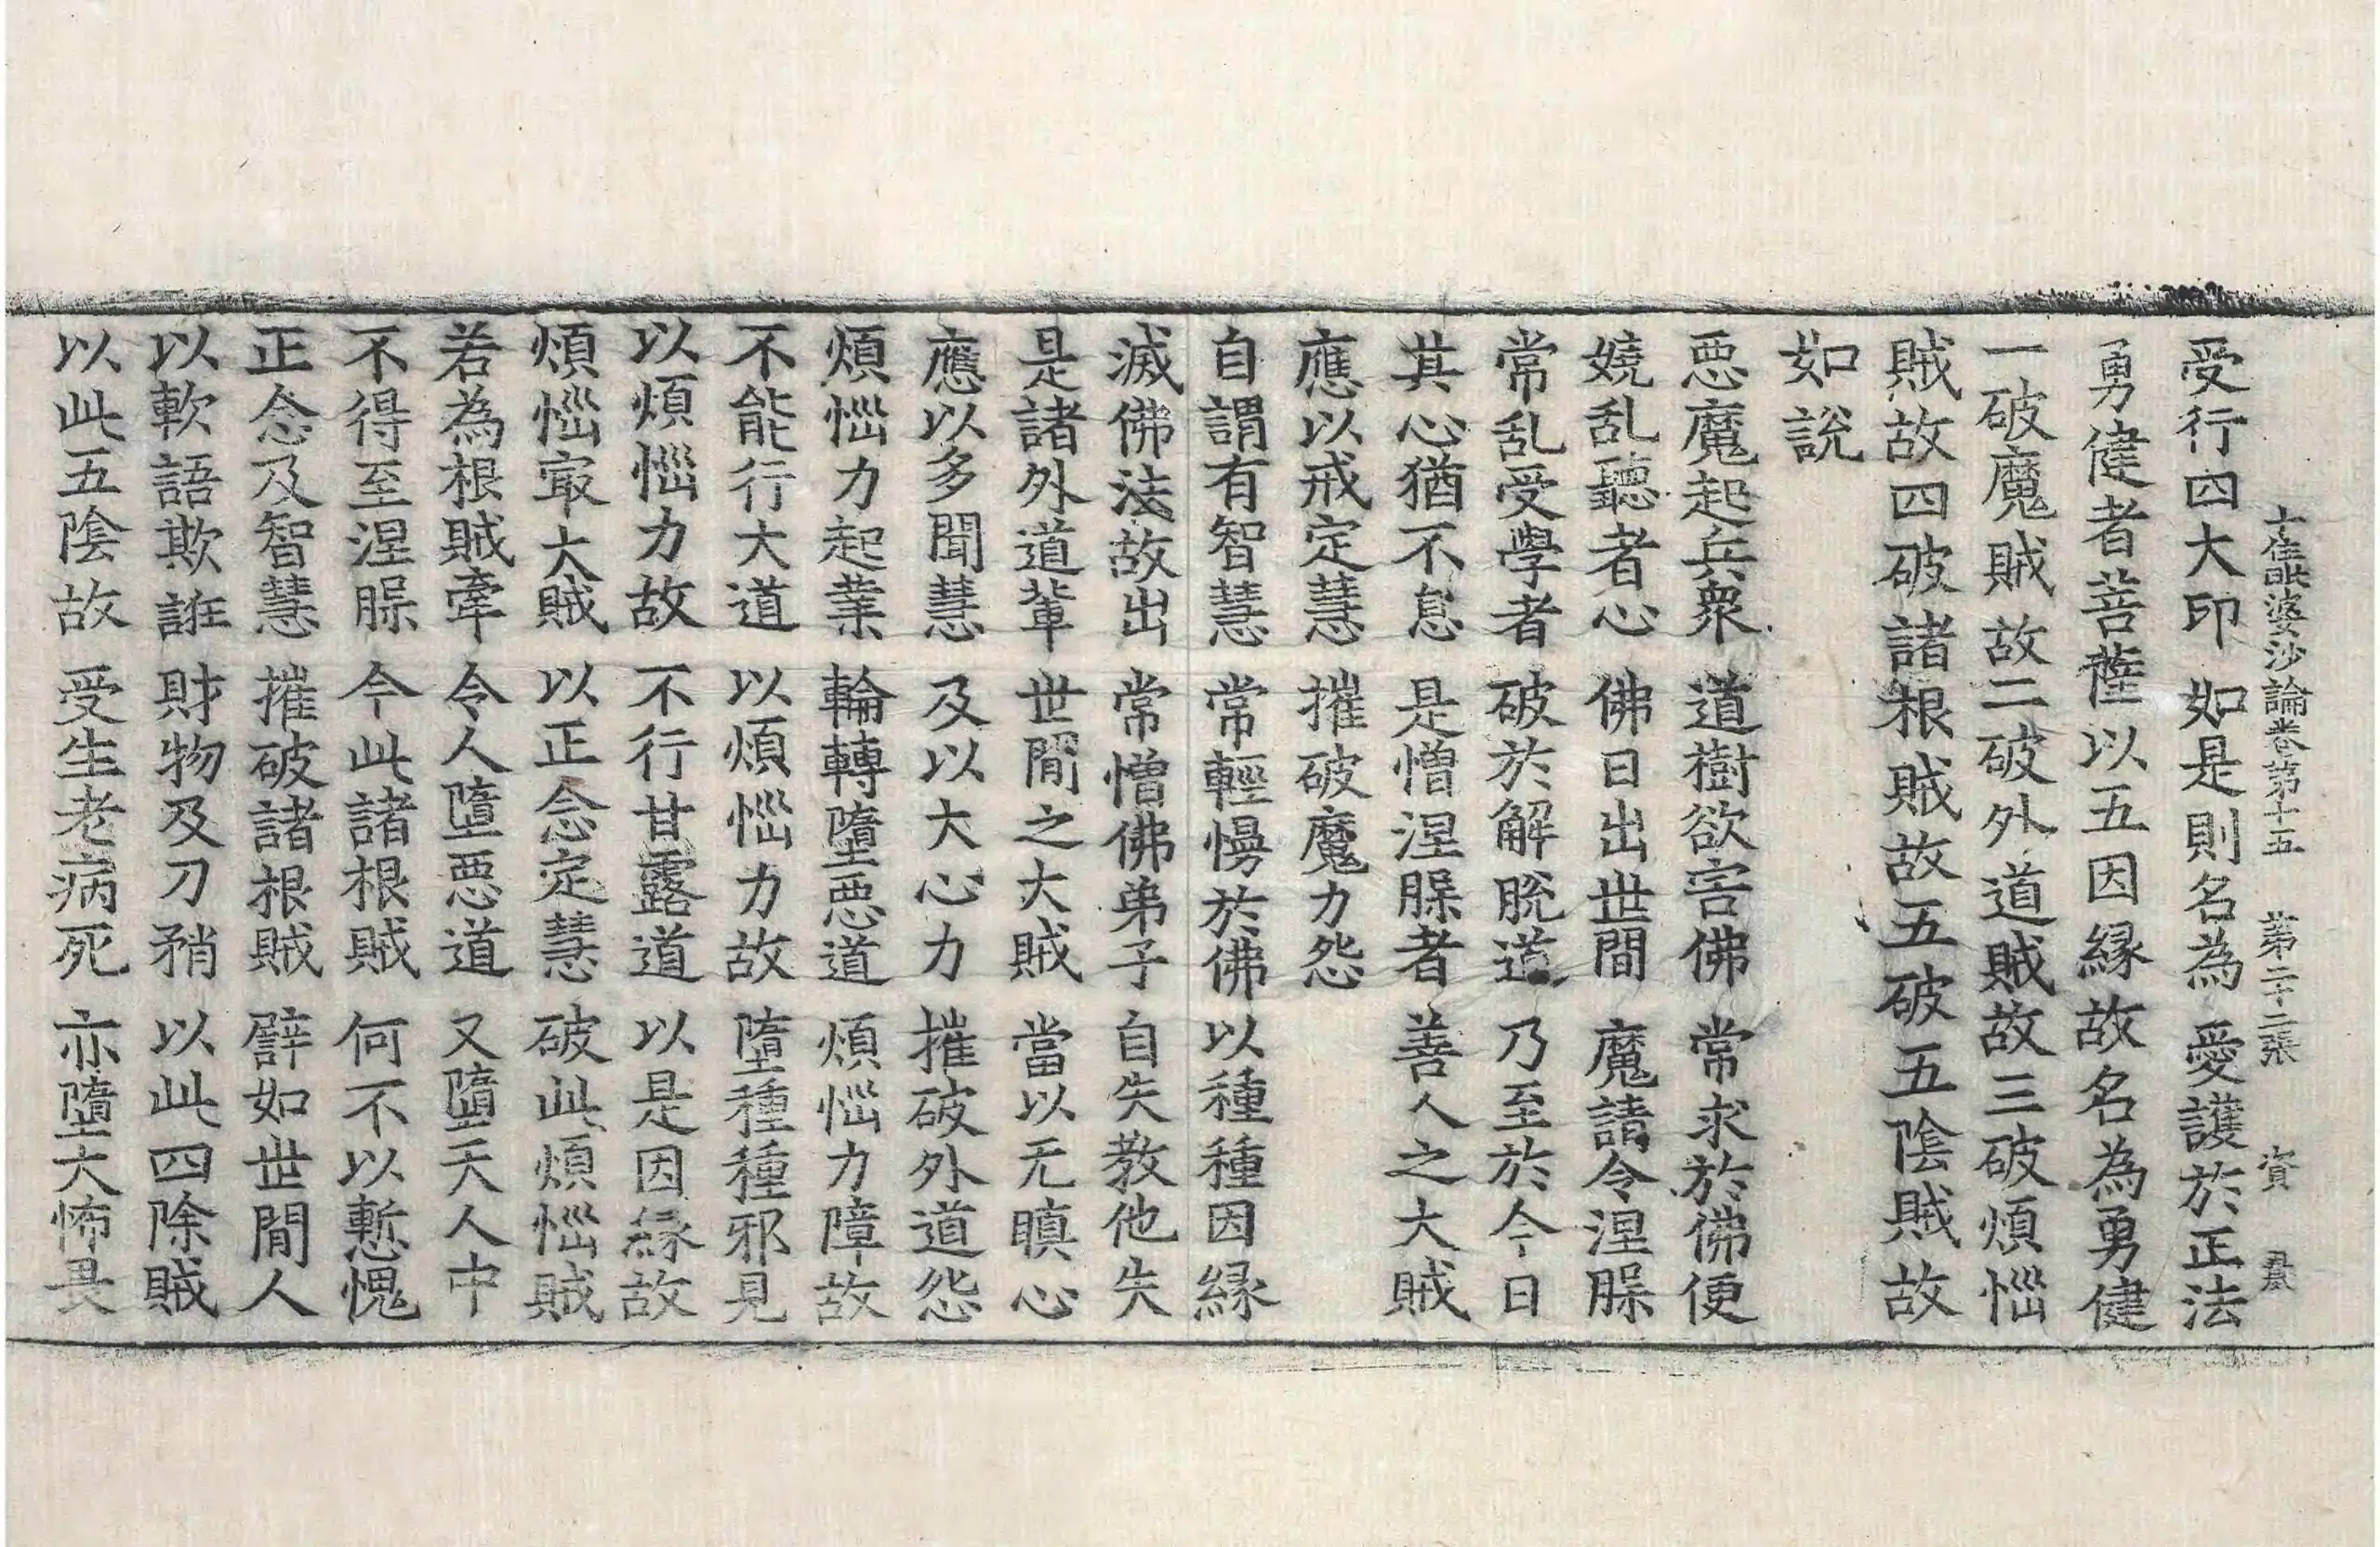 十住毗婆沙論卷第十五　第二十二張　資
受行四大印　如是則名為　愛護於正法
勇健者菩薩以五因緣故名為勇健
一破魔賊故二破外道賊故三破煩惱
賊故四破諸根賊故五破五陰賊故
如說
惡魔起兵衆　道樹欲害佛　常求於佛便
嬈乱聽者心　佛日出世間　魔請令涅槃
常乱受學者　破於解脫道　乃至於今日
其心猶不息　是憎涅槃者　善人之大賊
應以戒定慧　摧破魔力怨
自謂有智慧　常輕慢於佛　以種種因緣
滅佛法故出　常憎佛弟子　自失教他失
是諸外道輩　世間之大賊　當以无瞋心
應以多聞慧　及以大心力　摧破外道怨
煩惱力起業　輪轉墮惡道　煩惱力障故
不能行大道　以煩惱力故　墮種種邪見
以煩惱力故　不行甘露道　以是因緣故
煩惱冣大賊　以正念定慧　破此煩惱賊
若為根賊牽　令人墮惡道　又墮天人中
不得至涅槃　今此諸根賊　何不以慙愧
正念及智慧　摧破諸根賊　譬如世間人
以軟語欺誑　財物及刀矟　以此四除賊
以此五陰故　受生老病死　亦墮大怖畏